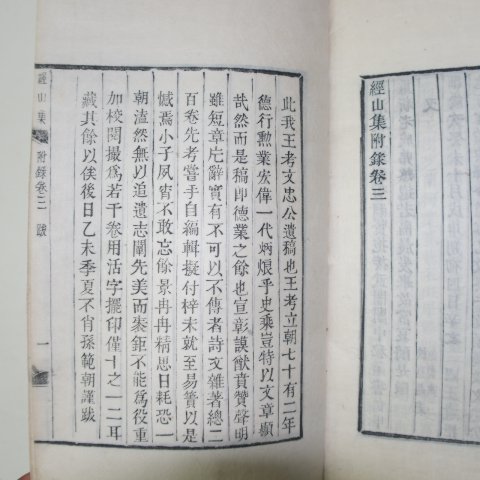 經山集附錄卷三
此我王考文忠公遺稿也王考立朝七十有二年
德行勲業宏偉一代炳烺乎史乘豈特以文章顯
哉然而是稿即德業之餘也宣彰謨猷賁贊聲明
雖短章片辭實有不可以不傳者詩文雜著總二
百卷先考嘗手自編輯擬付梓未就至易簀以是
憾焉小子夙宵不敢忘餘景冉冉精思日耗恐一
朝溘然無以追遺志闡先美而袠鉅不能爲役重
加校閱撮爲若干卷用活字擺印僅十之一二耳
藏其餘以俟後日乙未季夏不肖孫範朝謹跋
經山集 附錄卷三 跋 一